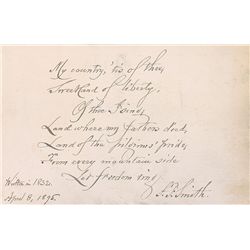 My country, 'tis of thee,
Sweet land of liberty,
Of thee I sing;
Land where my fathers died,
Land of the pilgrims' pride,
From every mountain side
Let freedom ring
S. F. Smith.
Written in 1832.
April 8, 1895.